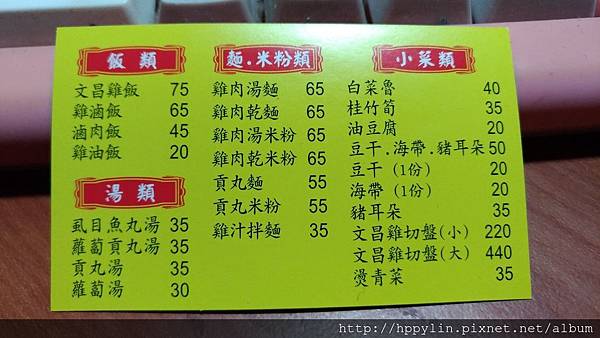 飯類
文昌雞飯 75
雞滷飯 65
滷肉飯 45
雞油飯 20
湯類
虱目魚丸湯 35
蘿蔔貢丸湯 35
貢丸湯 35
蘿蔔湯 30
麵.米粉類
雞肉湯麵 65
雞肉乾麵 65
雞肉湯米粉 65
雞肉乾米粉 65
貢丸麵 55
貢丸米粉 55
雞汁拌麵 35
小菜類
白菜魯 40
桂竹筍 35
油豆腐 20
豆干.海帶.豬耳朵 50
豆干(1份) 20
海帶(1份) 20
豬耳朵 35
文昌雞切盤(小) 220
文昌雞切盤(大) 440
燙青菜 35
http://hppylin.pixnet.net/album